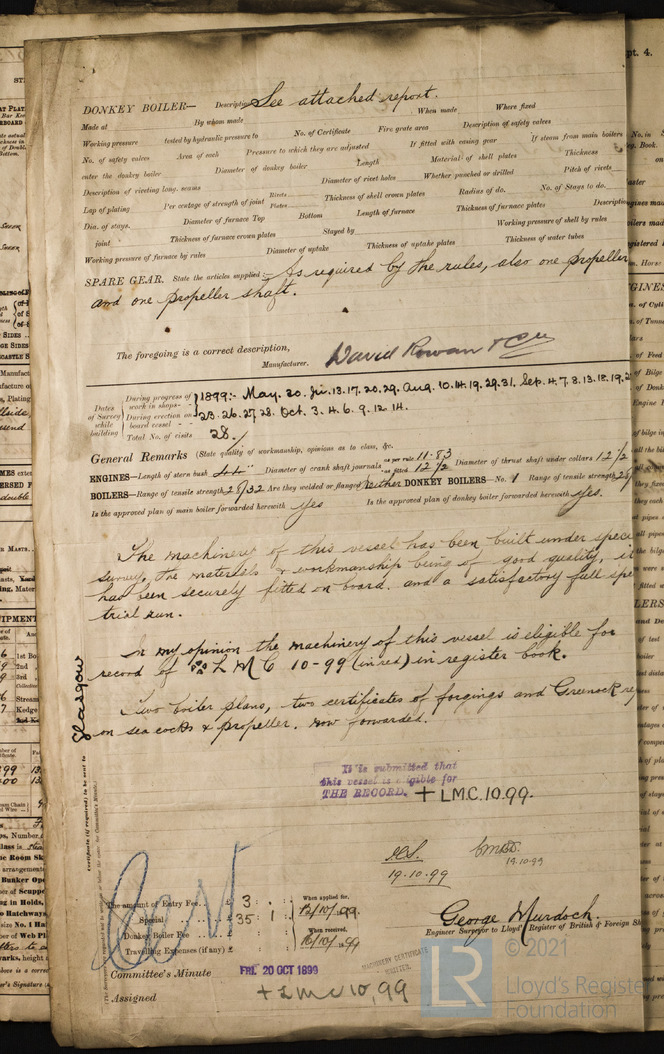 DONKEY BOILER— Description See attached report.
Made at By whom made When made Where fixed
Working pressure tested by hydraulic pressure to No. of Certificate Fire grate area Description of safety valves
No. of safety valves Area of each Pressure to which they are adjusted If fitted with easing gear If steam from main boilers
enter the donkey boiler Diameter of donkey boiler Length Material of shell plates Thickness
Description of riveting long. seams Diameter of rivet holes Whether punched or drilled Pitch of rivets
Lap of plating Per centage of strength of joint Rivets Plates Thickness of shell crown plates Radius of do. No. of Stays to do.
Dia. of stays. Diameter of furnace Top Bottom Length of furnace Thickness of furnace plates Description
joint Thickness of furnace crown plates Stayed by Working pressure of shell by rules
Working pressure of furnace by rules Diameter of uptake Thickness of uptake plates Thickness of water tubes
SPARE GEAR. State the articles supplied:— As required by the rules, also one propeller
and one propeller shaft.
The foregoing is a correct description,
Manufacturer. David Rowan & Co
Dates of Survey while building
During progress of work in shops— 1899:- May. 30. Ju. 13. 17. 20. 29. Aug. 10. 14. 19. 29. 31. Sep. 4. 7. 8. 13. 18. 19. 2
During erection on board vessel— 23. 26. 27. 28. Oct. 3. 4. 6. 9. 12. 14.
Total No. of visits 28.
General Remarks (State quality of workmanship, opinions as to class, &c.
ENGINES—Length of stern bush 4'-4" Diameter of crank shaft journals as per rule 11.83 as fitted 12 1/2 Diameter of thrust shaft under collars 12 1/2
BOILERS—Range of tensile strength 28/32 Are they welded or flanged Neither DONKEY BOILERS—No. 1 Range of tensile strength 28/
Is the approved plan of main boiler forwarded herewith Yes Is the approved plan of donkey boiler forwarded herewith Yes.
The machinery of this vessel has been built under spec
survey, the materials & workmanship being of good quality, i
has been securely fitted on board. and a satisfactory full spe
trial run.
In my opinion the machinery of this vessel is eligible for
record of + L M C 10-99 (in red) in register book.
Two boiler plans, two certificates of forgings and Greenock rep
on sea cocks & propeller. now forwarded.
Glasgow
Certificate (if required) to be sent to
It is submitted that
this vessel is eligible for
THE RECORD. + LMC. 10.99.
19.10.99
19.10.99
The amount of Entry Fee.. £ 3 : : When applied for,
Special £ 35 : 1 : 12/10/99.
Donkey Boiler Fee £ : : When received,
Travelling Expenses (if any) £ : : 16/10/99
George Murdoch.
Engineer Surveyor to Lloyd's Register of British & Foreign Sh
MACHINERY CERTIFICATE
WRITTEN.
Committee's Minute FRI. 20 OCT 1899
Assigned + LMC 10,99
© 2021
LR
Lloyd's Registe
Foundation